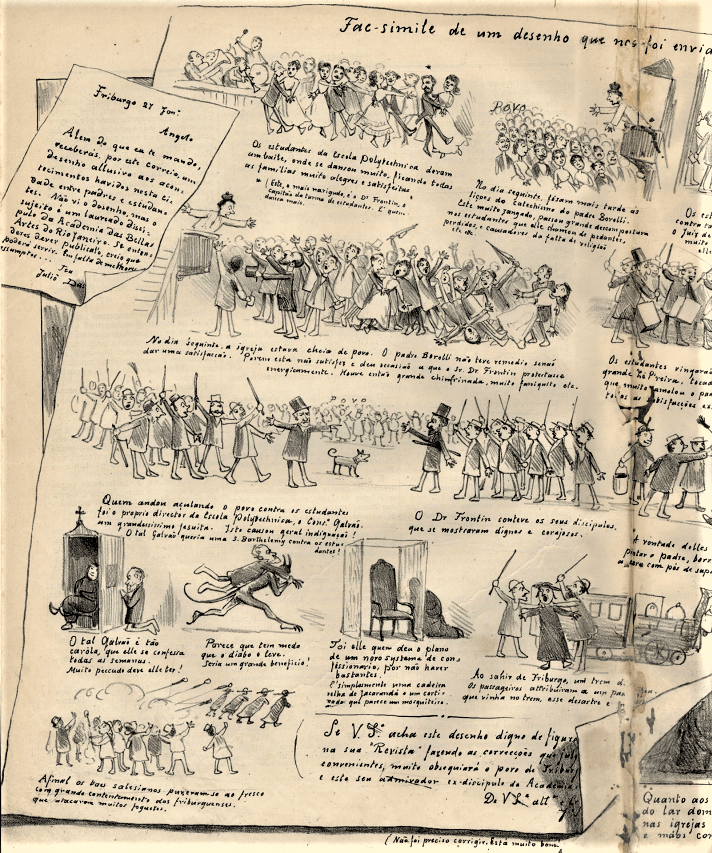 Fac-simile de um desenho que nos foi envia
Friburgo 27 Jan.
Angelo
Alem do que eu te mando,
receberás, por este correio, um
desenho allusivo aos acon,
tecimentos havidos nesta ci,
dade entre padres e estudan
tes. Não vi o desenho, mas o
sujeito é um laureado disci,
pulo da Academia das Bellas
Artes do Rio Janeiro. Se enten,
deres dever publical-o, creio que
poderá servir. Em falta de melhores
assumptos...
Teu
Julio Dast
Os estudantes da Escola Polytechnica deram
um baile, onde se dansou muito, ficando todas
as familias muito alegres e satisfeitas
(Este, o mais narigudo, é o Dr Frontin, o
capitão da turma de estudantes.
nunca mais.
Povo
No dia seguinte, fôram mais tarde as
lições do catechismo do padre Borelli.
Este muito zangado, passou grande descompostura
nos estudantes que elle chamou de pedantes,
perdidos, e causadores da falta de religião
etc. etc.
Os est
contra
O Jury d
muito
elle
No dia seguinte, a igreja estava cheia de povo. O padre Borelli não teve remedio senaõ
dar uma satisfacção. Porem esta não satisfez e deu occasião a que o sr. Dr Frontin protestasse
energicamente. Houve então grande chinfrinada, muito faniquito etc.
Os estudantes vingaraõ
grande Zé Pereira, tocad
que muito amolou o pad
as satisfacções ex.
Povo
Quem andou açulando o povo contra os estudantes
foi o proprio director da Escola Polytechnica, o Cons. Galvaõ.
um grandessissimo jesuita. Isto causou geral indignação!
O tal Galvaõ queria uma S. Barthelemy contra os estu-
dantes!
O Dr Frontin conteve os seus discipulos,
que se mostraram dignos e corajosos.
A vontade delles
pintar o padre, borr
com pós de sapa
O tal Galvaõ é tão
caróla, que elle se confessa
todas as semanas.
Muito peccado deve elle ter!
Parece que tem medo
que o diabo o leve.
Seria um grande beneficio!
Foi elle quem deu o plano
de um novo systema de con
fissionario, por não haver
bastantes.
É simplesmente uma cadeira
velha de jacarandá e um corti-
nado qui parece um mosquiteiro.
Ao sahir de Friburgo, um trem d
Os passageiros attribuiram a um pad
que vinha no trem, esse desastre e
Afinal os bons salesianos puzeram-se ao fresco
com grande contentamento dos friburguenses.
que atacaram muitos foguetes.
Se V. Sª acha este desenho digno de figura
na sua "Revista" fazendo as correcções que jul
convenientes, muito obsequiará o povo de Fribur
e este seu admirador ex-discipulo da Academia
De V Sª attº
(Não foi preciso corrigir. Está muito bom.
Quanto aos
do lar dom
nas igrejas
e mãos con